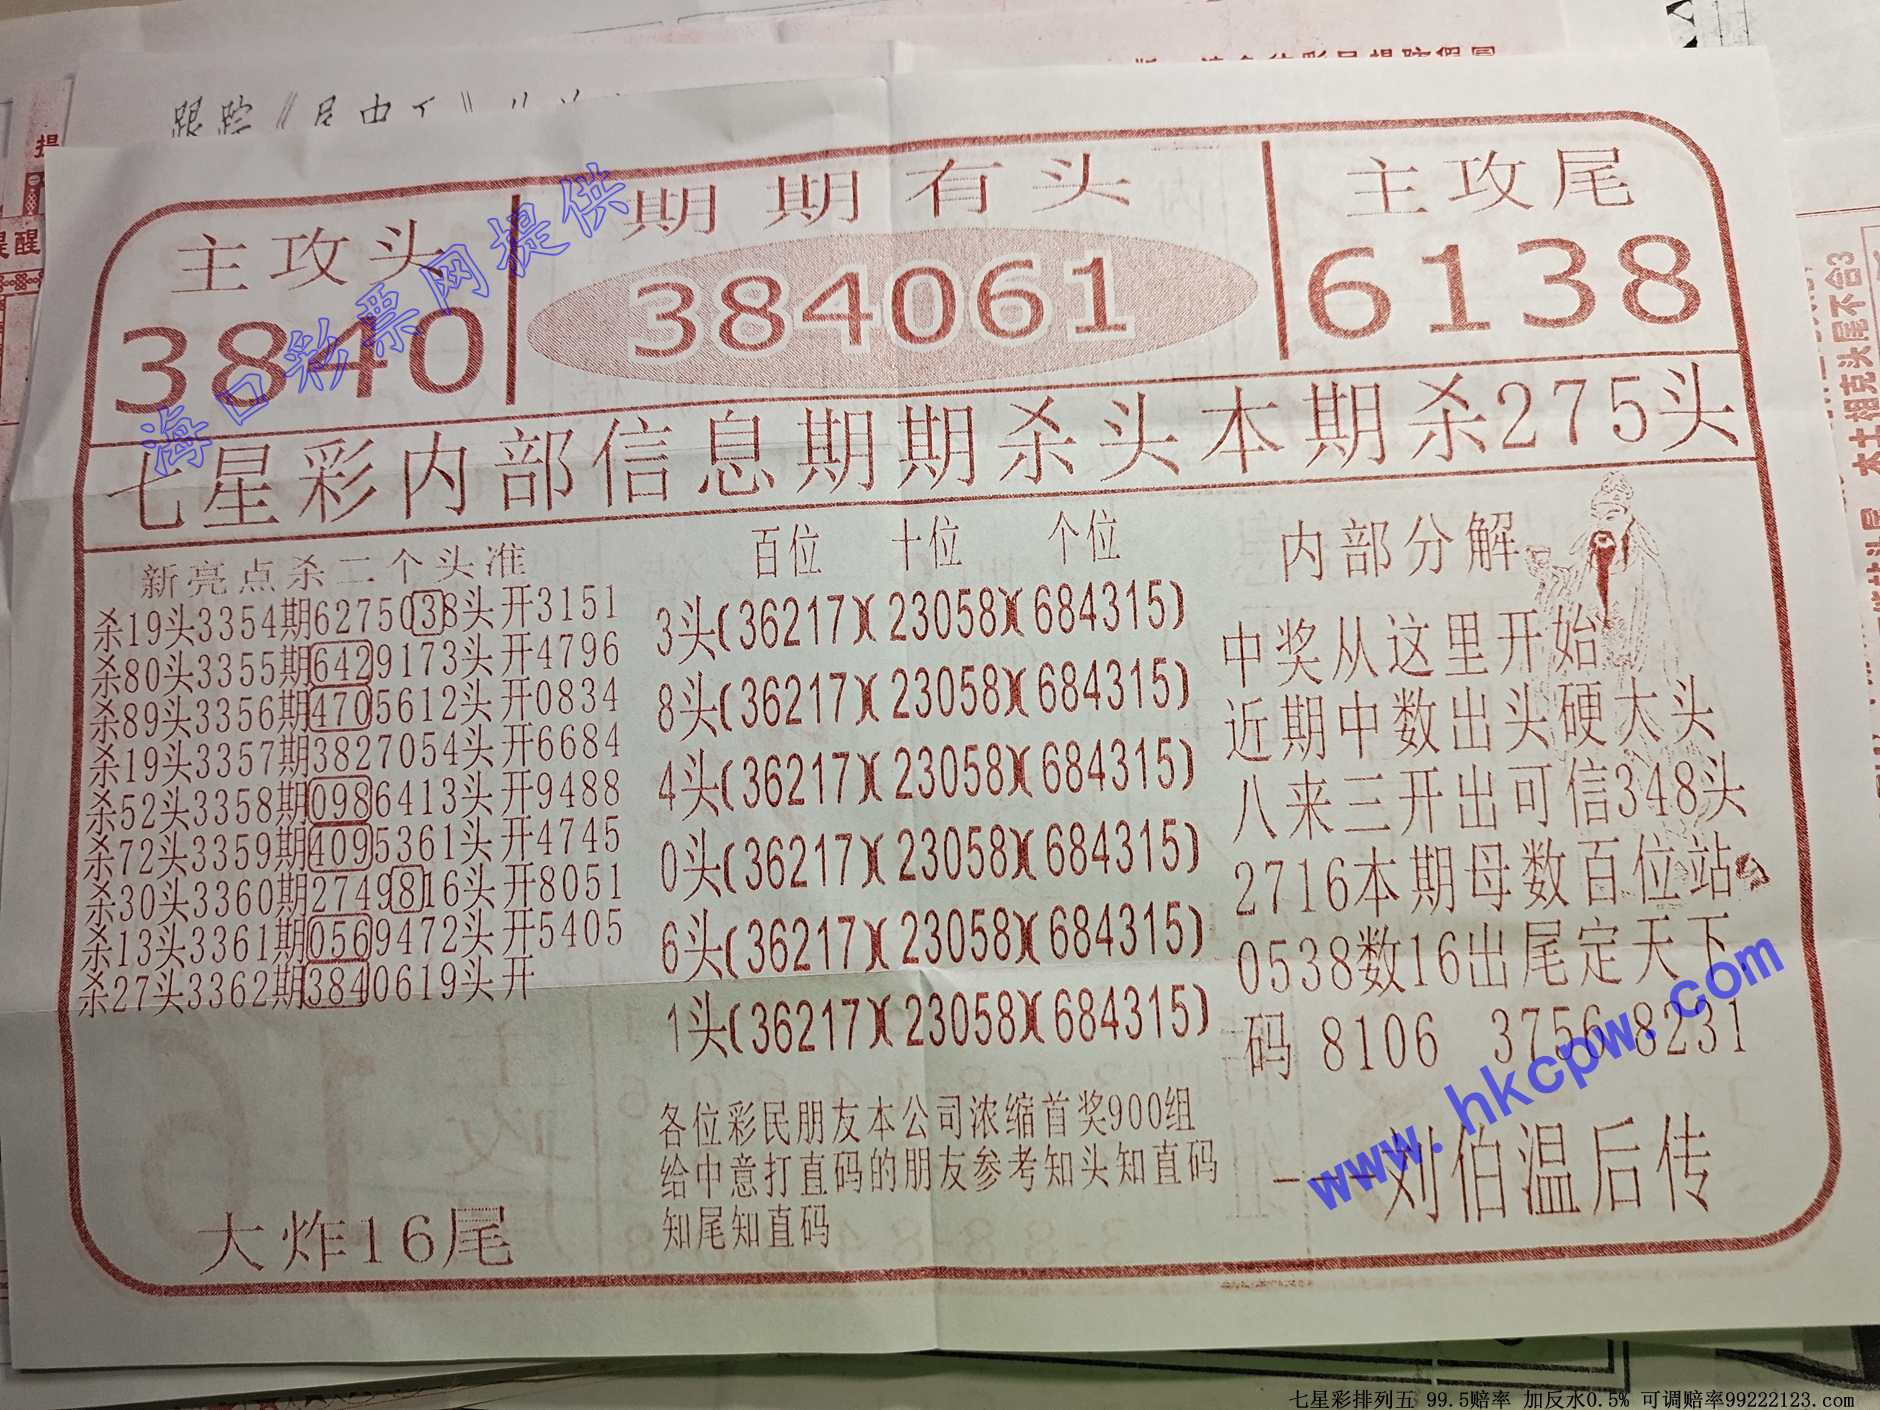 跟踪
主攻头
3840
期期有头
384061
主攻尾
6138
七星彩内部信息期期杀头本期杀275头
新亮点杀二个头准
杀19头3354期6275038头开3151
杀80头3355期6429173头开4796
杀89头3356期4705612头开0834
杀19头3357期3827054头开6684
杀52头3358期0986413头开9488
杀72头3359期4095361头开4745
杀30头3360期2749816头开8051
杀13头3361期0569472头开5405
杀27头3362期3840619头开
大炸16尾
百位 十位 个位
3头(36217)(23058)(684315)
8头(36217)(23058)(684315)
4头(36217)(23058)(684315)
0头(36217)(23058)(684315)
6头(36217)(23058)(684315)
1头(36217)(23058)(684315)
各位彩民朋友本公司浓缩首奖900组
给中意打直码的朋友参考知头知直码
知尾知直码
内部分解
中奖从这里开始
近期中数出头硬大头
八来三开出可信348头
2716本期母数百位站
0538数16出尾定天下
码 8106 3756 8231
----刘伯温后传
海口彩票网提供
www.hkcpw.com
七星彩排列五 99.5赔率 加反水0.5% 可调赔率99222123.com